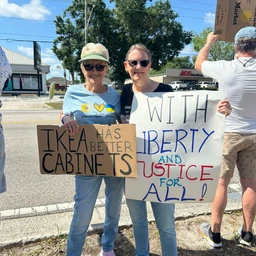 IKEA HAS
BETTER
CABINETS
WITH
LIBERTY
AND
JUSTICE
FOR
ALL!